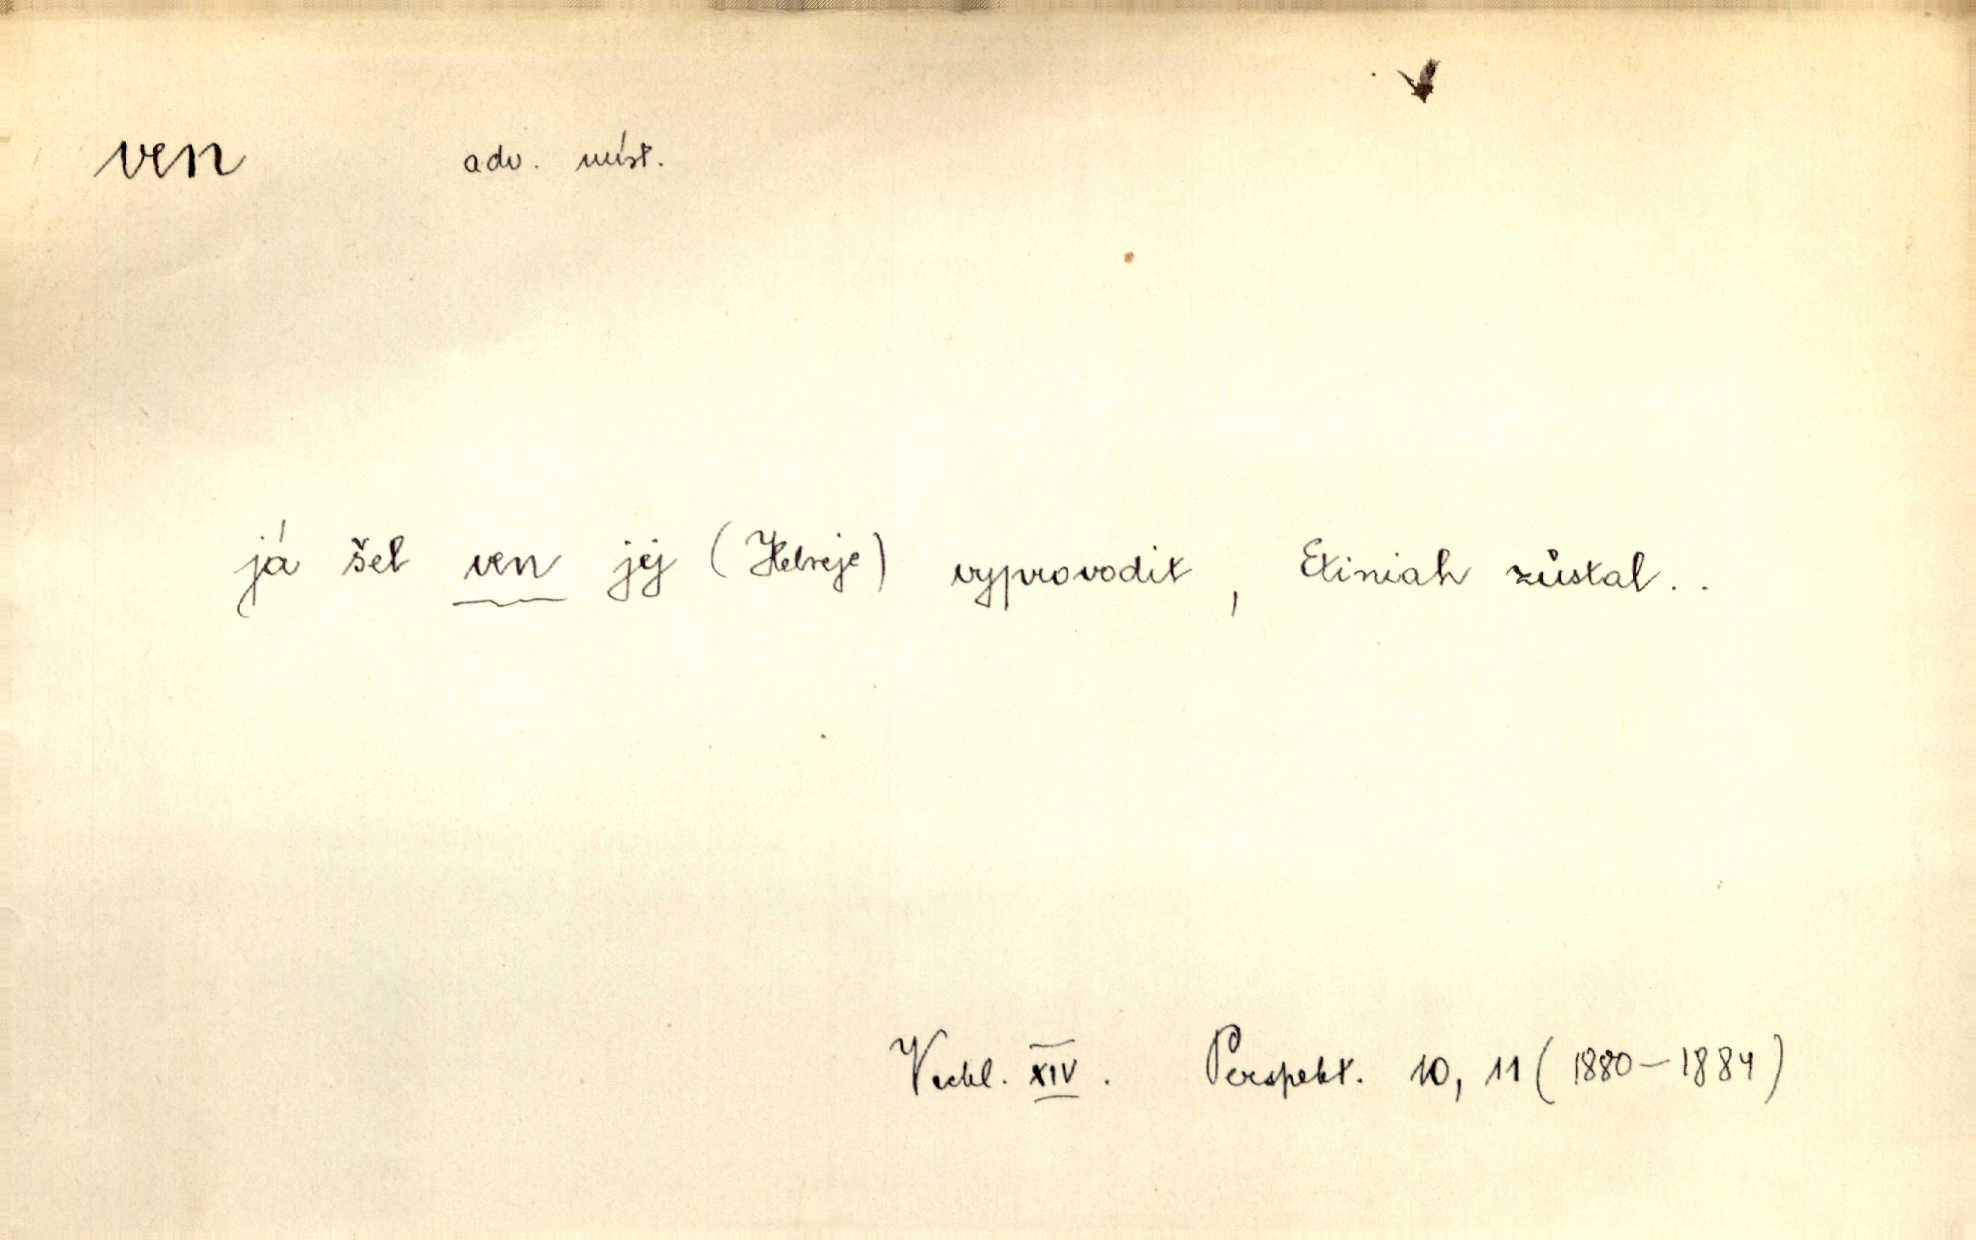 ven adv. míst.
já šel ven jej (Hebreje) vyprovodit, Etiniah zůstal..
Vrchl. XIV. Perspekt. 10, 11 (1880–1884)